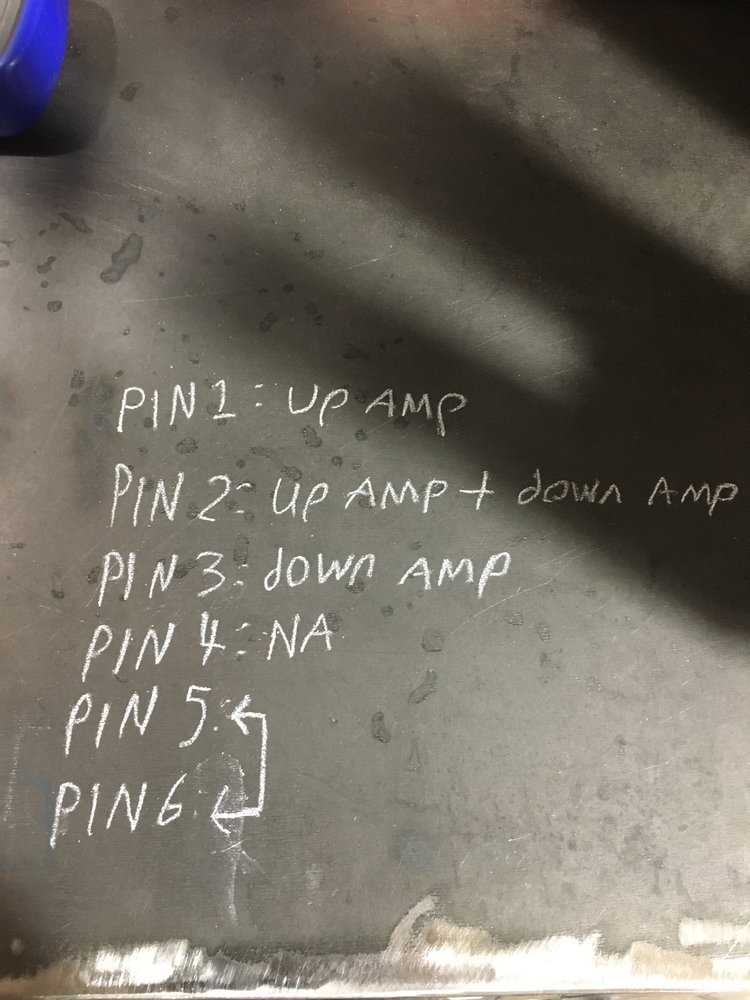 PIN 1: UP AMP
PIN 2: UP AMP + down AMP
PIN 3: down AMP
PIN 4: NA
PIN 5:
PIN 6: